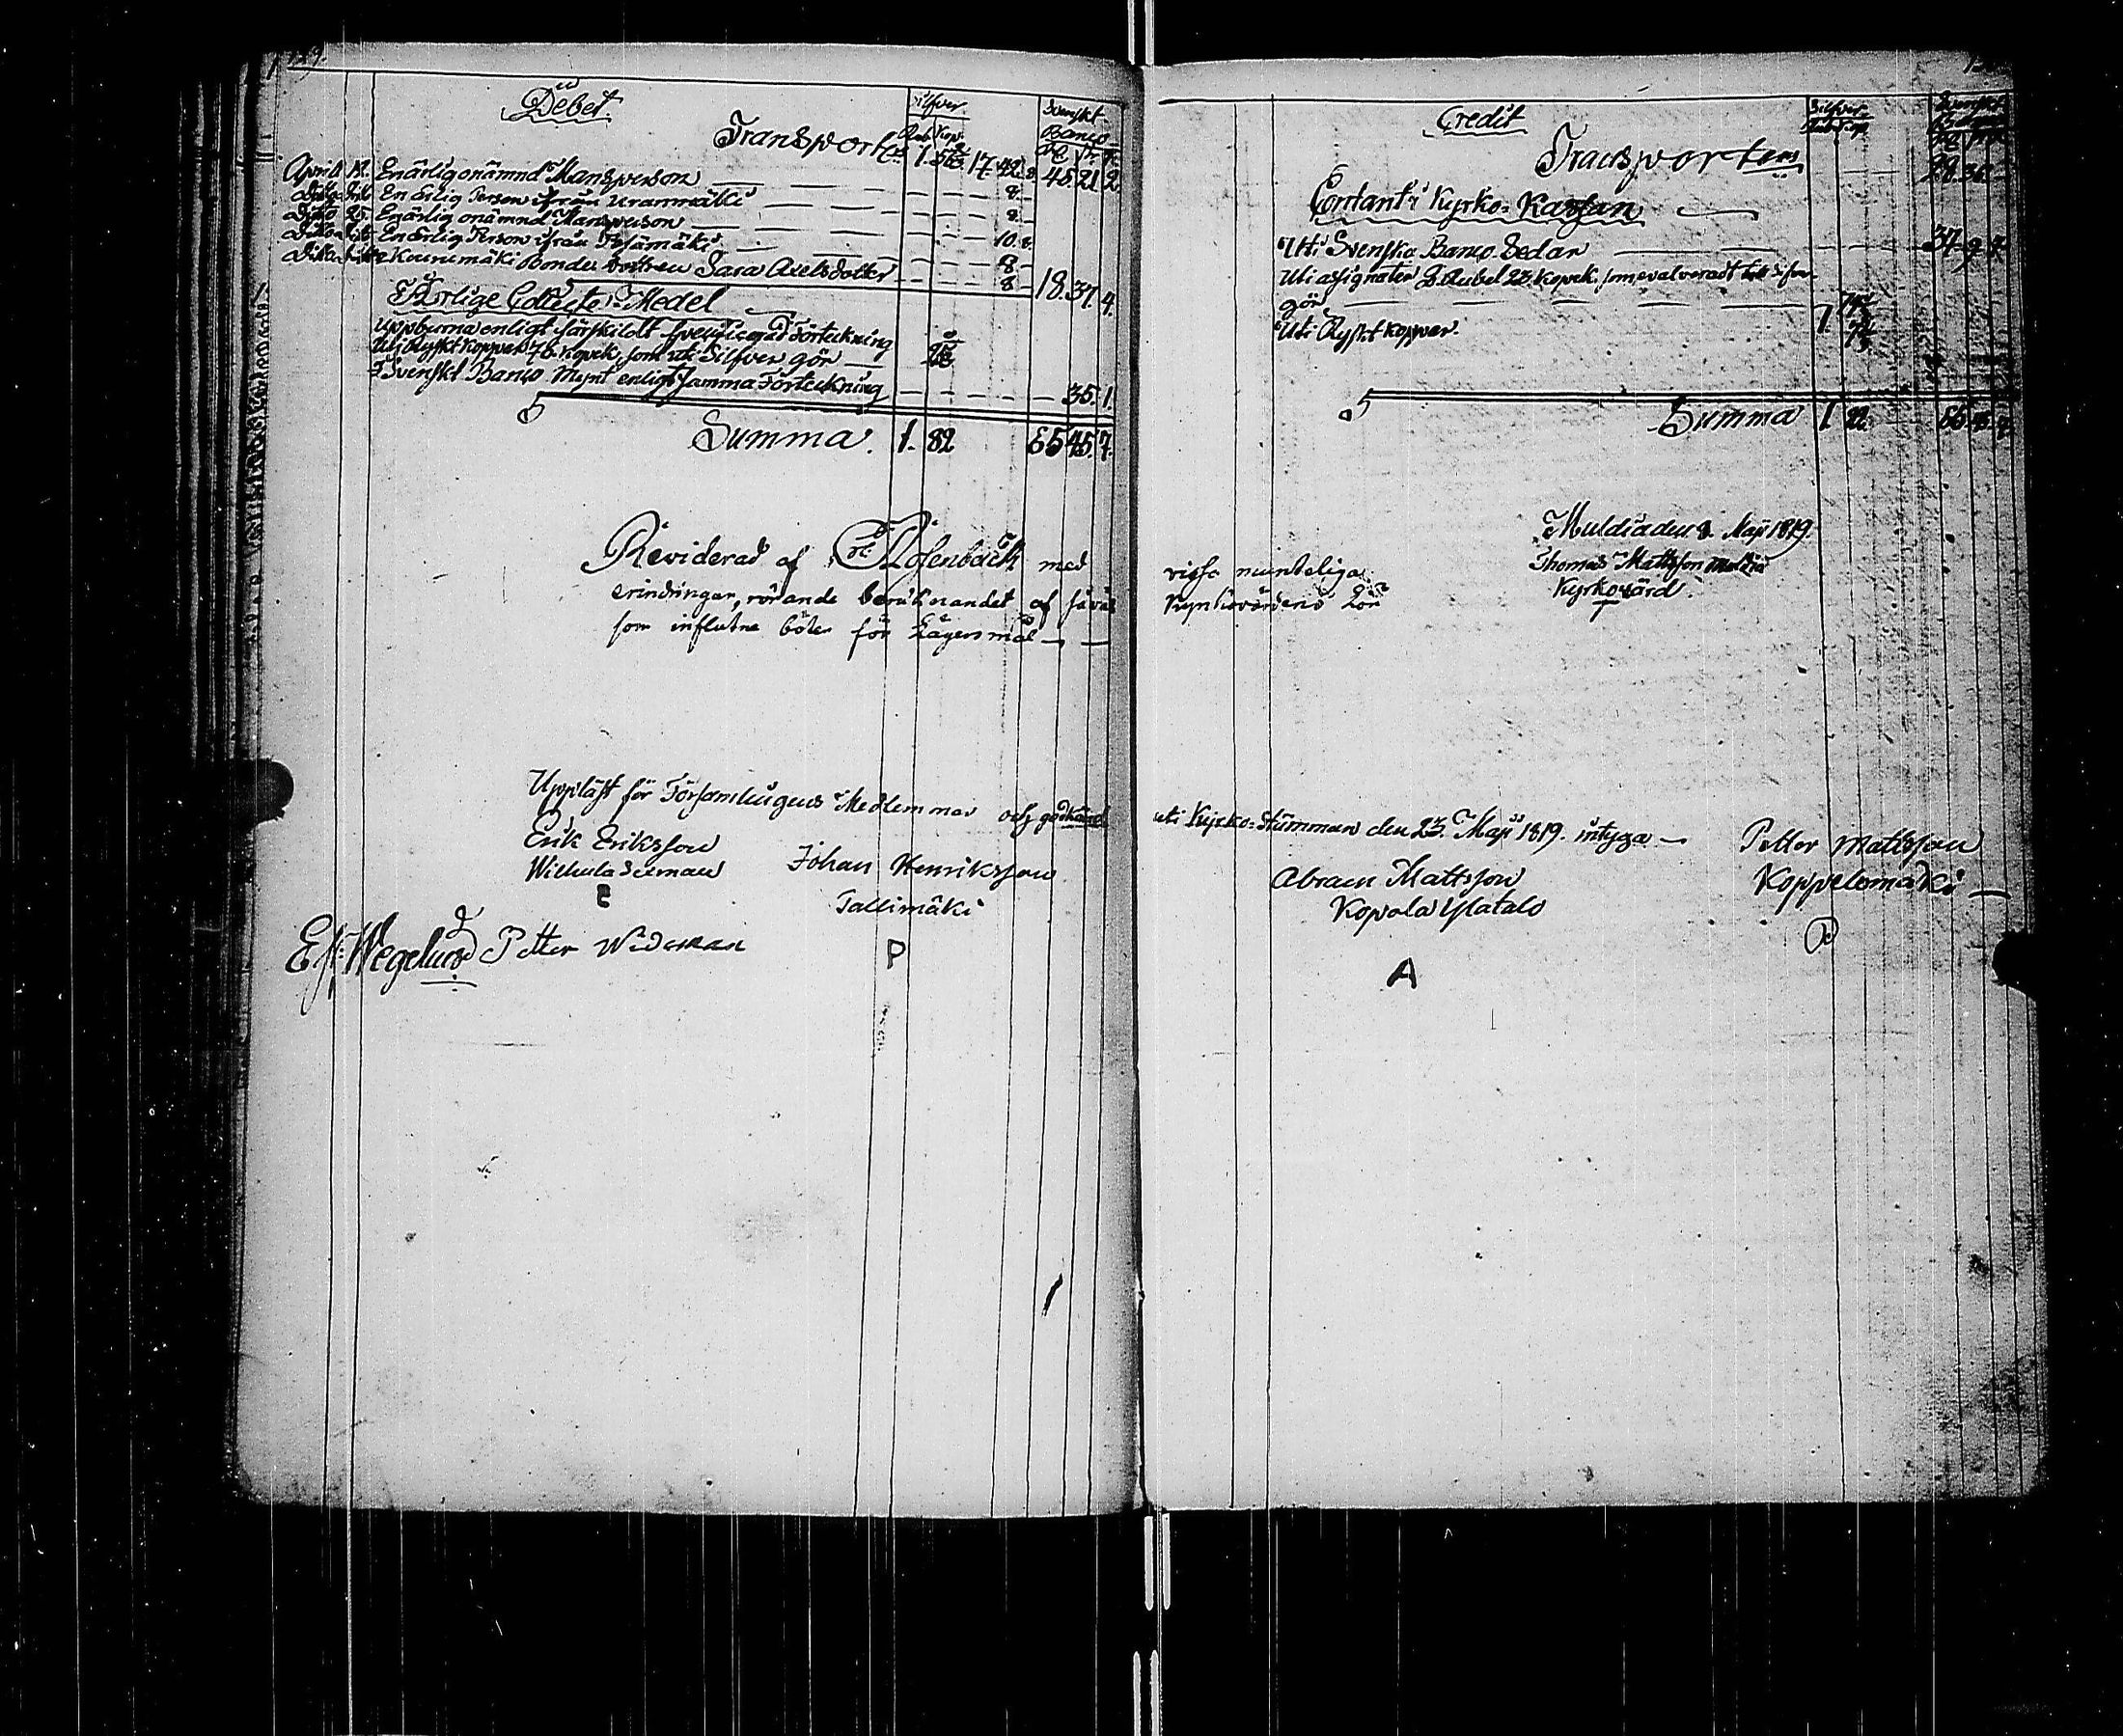 Debet.
Silfver.
Svenskt
Banco
Rub. Kop.
Transporter 1. 17. 45. 21 2
April 18. En ärlig onämnd Mansperson 8.
Dito Dito En ärlig Person ifrån 8.
Dito 25. En ärlig onämnd Mansperson 10. 8.
Dito Dito En ärlig Person ifrån 8
Dito Dito Bonde hustrun Sara Axelsdotter 8 18. 37. 4.
Ärlige Collecte-Medel
Uppburna enligt särskildt Förteckning
Uti Ryskt Koppar 76. Kopek, som uti Silfver gör
I Svenskt Banco Mynt enligt samma Förteckning 35. 1.
Summa. 1. 82 65 45. 7.
Reviderad af Rosenback med
erindringar, rörande beräknandet af såväl
som influtne böter för Lägersmål
Uppläst för Församlingens Medlemmar och godkänd
Erik Eriksson
Johan Henriksson
Tallimäki
P
Wegelius Petter Wideman
Credit
Silfver
Svenskt
Transporten 28. 36.
Contant i Kyrko-Kassan
Uti Svenska Banco Sedlar 37. 9. 7.
Uti assignater 3. Rubel 23. Kopek, som evalveradt till Silfver
gör
Uti Ryskt koppar. 1.
Summa 1. 82. 65. 45. 7.
Muldia den 8. Maji 1819.
Thomas Mattsson Muldia
Kyrkovärd.
vissa munteliga
Kyrkovärdens Lön
uti Kyrko-Stämman den 23. Maji 1819. intyga
Petter Mattsson
Koppelomäki
Abram Mattsson
Kopola Ylatalo
P
A